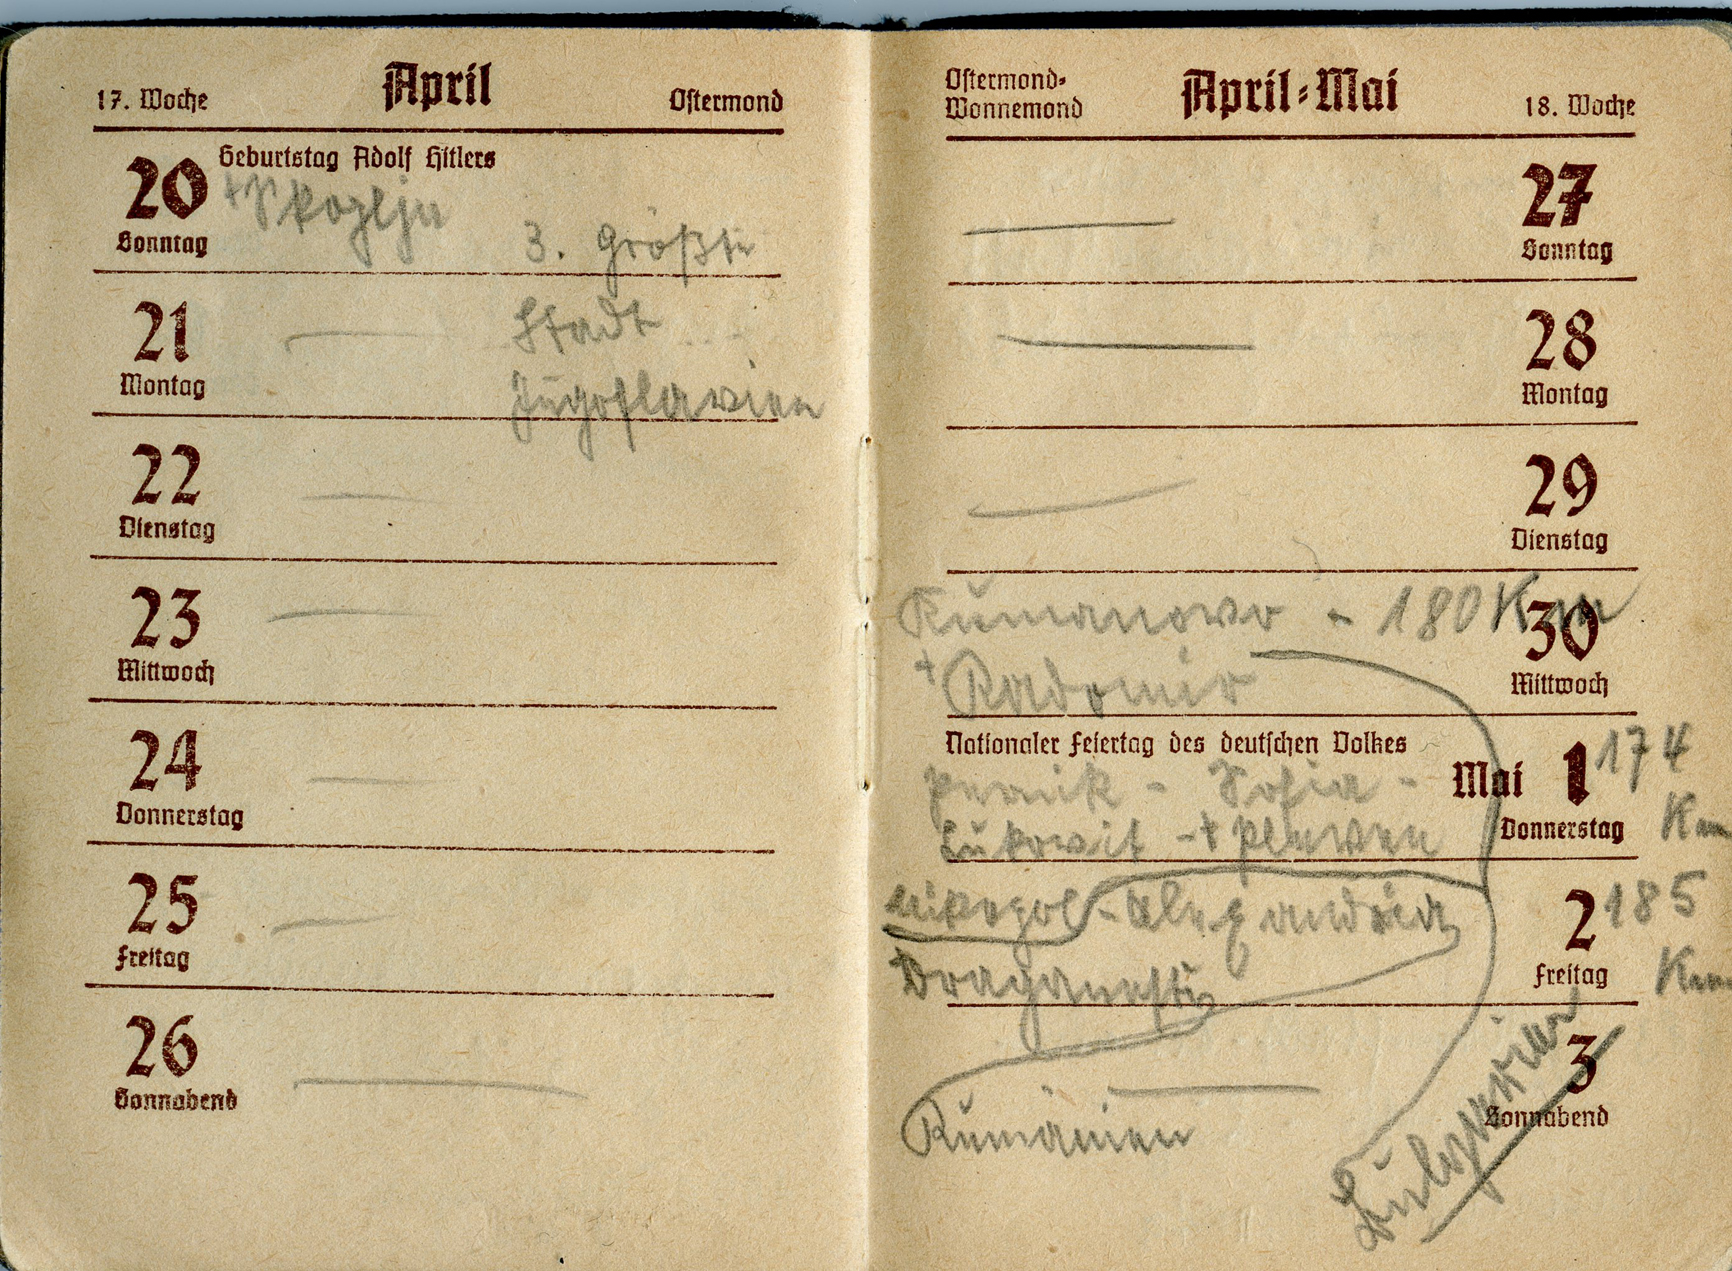 17. Woche April Ostermond
20 Geburtstag Adolf Hitlers
Sonntag
+ Skoplje
3. Größte
21
Montag
Stadt
Jugoslavien
22
Dienstag
23
Mittwoch
24
Donnerstag
25
Freitag
26
Sonnabend
Ostermond-
Wonnemond April-Mai 18. Woche
27
Sonntag
28
Montag
29
Dienstag
Kumanowo - 180 Km
30
Mittwoch
+ Radomir
Nationaler Feiertag des deutschen Volkes
Mai 1
Donnerstag
174
Km
Pernik - Sofia -
Lukowit - + Plewen
Nikopol - Alexandria
2
Freitag
185
Km
+ Draganesti
3
Sonnabend
Rumänien
Bulgarien